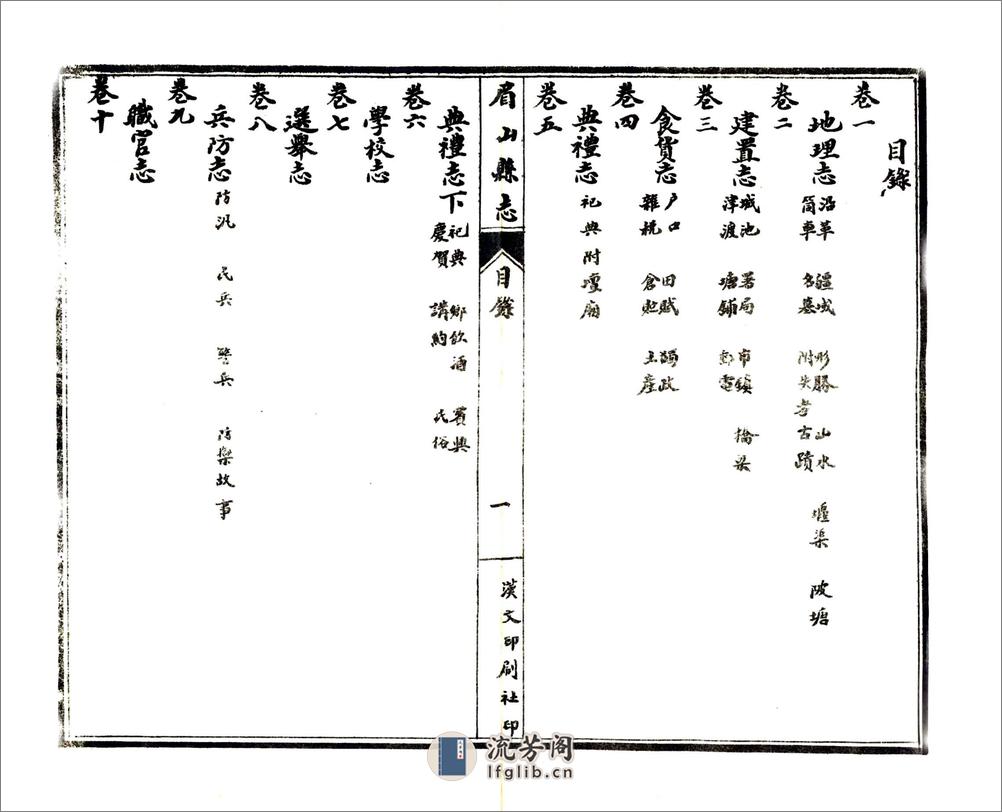 目錄
卷一
地理志 沿革 疆域 形勝 山水 堰渠 陂塘
筒車 名墓 附失考古蹟
卷二
建置志 城池 署局 市鎮 橋梁
津渡 塘鋪 郵電
卷三
食貨志 户口 田賦 蠲政
雜稅 倉 土產
卷四
典禮志 祀典附壇廟
卷五
眉山縣志
目錄
一
漢文印刷社印
典禮志下 祀典 鄉飲酒 賓興
慶賀 講約 民俗
卷六
學校志
卷七
選舉志
卷八
兵防志 防汛 民兵 警兵 防禦故事
卷九
職官志
卷十
流芳阁
lfglib.cn